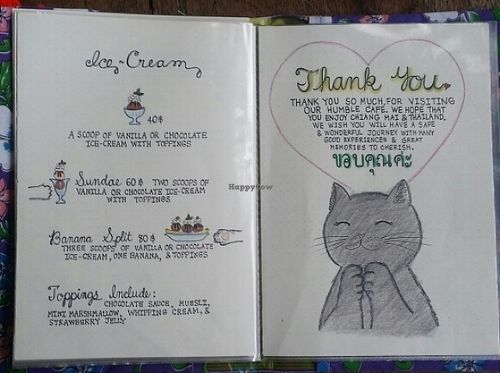 Ice-Cream
40฿
A SCOOP OF VANILLA OR CHOCOLATE
ICE-CREAM WITH TOPPINGS
Sundae 60฿ TWO SCOOPS OF
VANILLA OR CHOCOLATE ICE-CREAM
WITH TOPPINGS
Banana Split 80฿
THREE SCOOPS OF VANILLA OR CHOCOLATE
ICE-CREAM, ONE BANANA, & TOPPINGS
Toppings Include:
CHOCOLATE SAUCE, MUESLI,
MINI MARSHMALLOW, WHIPPING CREAM, &
STRAWBERRY JELLY
HappyCow
Thank You.
THANK YOU SO MUCH, FOR VISITING
OUR HUMBLE CAFE. WE HOPE THAT
YOU ENJOY CHIANG MAI & THAILAND.
WE WISH YOU WILL HAVE A SAFE
& WONDERFUL JOURNEY WITH MANY
GOOD EXPERIENCES & GREAT
MEMORIES TO CHERISH.
ขอบคุณค่ะ